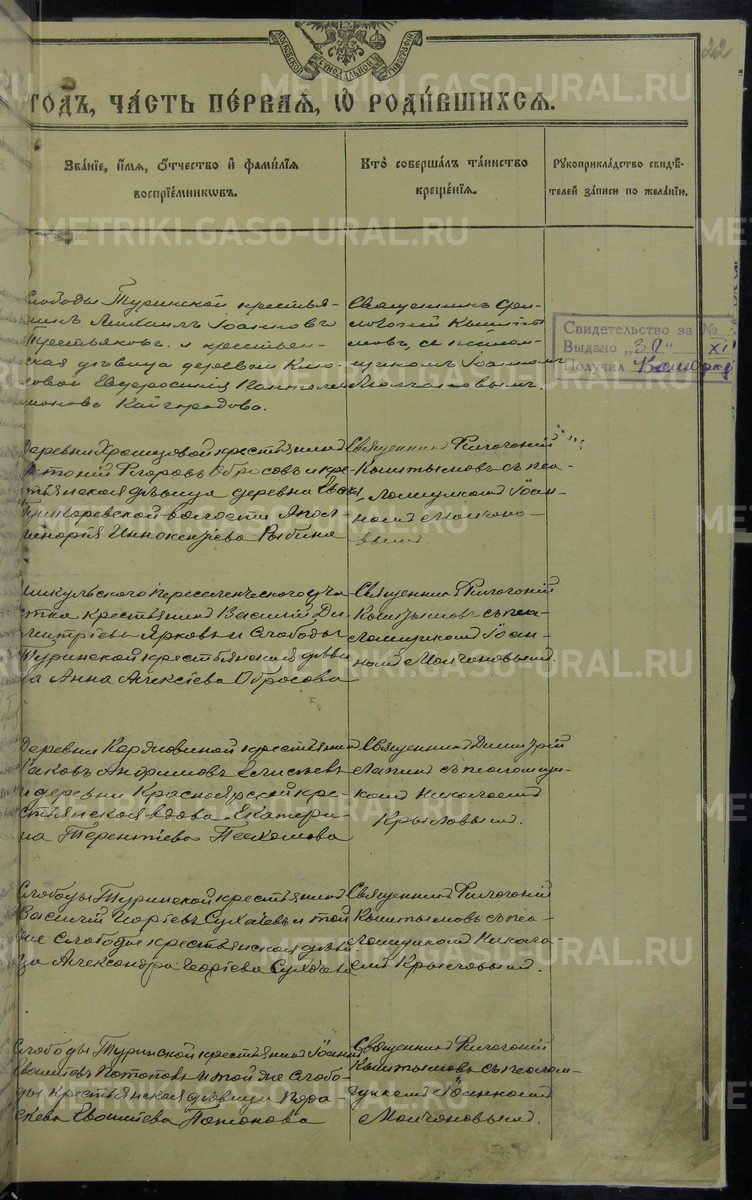 22
годъ, ча́сть пе́рвая, ѡ҆ роди́вшихся.
Зва́нїе, и҆́мя, ѻ҆́тчество и҆ фами́лїя
воспрїе́мникѡвъ.
Кто̀ соверша́лъ та́инство
креще́нїя.
Рꙋкоприкла́дство свидѣ́-
телей за́писи по жела́нїю.
METRIKI.GASO-URAL.RU
Слободы Туринской крестья-
нинъ Михаилъ Іоанновъ
Третьяковъ и крестьян-
ская дѣвица деревни
Евфросинія
Кайгородова.
Священникъ Фи-
логоній Кыштъ-
мовъ, съ псалом-
щикомъ Іоанномъ
Молчановымъ.
Свидетельство за №
Выдано „30" XI
Получил
Деревни крестьянинъ
Обросовъ и кре-
стьянская дѣвица деревни
волости Апол-
инарія Иннокентіева Рыбина
Священникъ Филогоній
Кыштымовъ съ пса-
ломщикомъ Іоан-
номъ Молчано-
вымъ.
переселенческаго уча-
стка крестьянинъ Василій Ди-
митріевъ Ярковъ и Слободы
Туринской крестьянская дѣви-
ца Анна Алексіева Обросова
Священникъ Филогоній
Кыштымовъ съ пса-
ломщикомъ Іоан-
номъ Молчановымъ.
Деревни крестьянинъ
Іаковъ Елисѣевъ
и деревни Красноярской кре-
стьянская вдова Екатери-
на Терентіева
Священникъ Димитрій
Лапинъ съ псаломщи-
комъ Николаемъ
Крыловымъ.
Слободы Туринской крестьянинъ
Василій Георгіевъ Сухачевъ и той
же Слободы крестьянская дѣви-
ца Александра Георгіева
Священникъ Филогоній
Кыштымовъ съ пса-
ломщикомъ Никола-
емъ Крыловымъ.
Слободы Туринской крестьянинъ Іоаннъ
и той же Слобо-
ды крестьянская дѣвица Пара-
скева Потопова
Священникъ Филогоній
Кыштымовъ съ псалом-
щикомъ Іоанномъ
Молчановымъ.